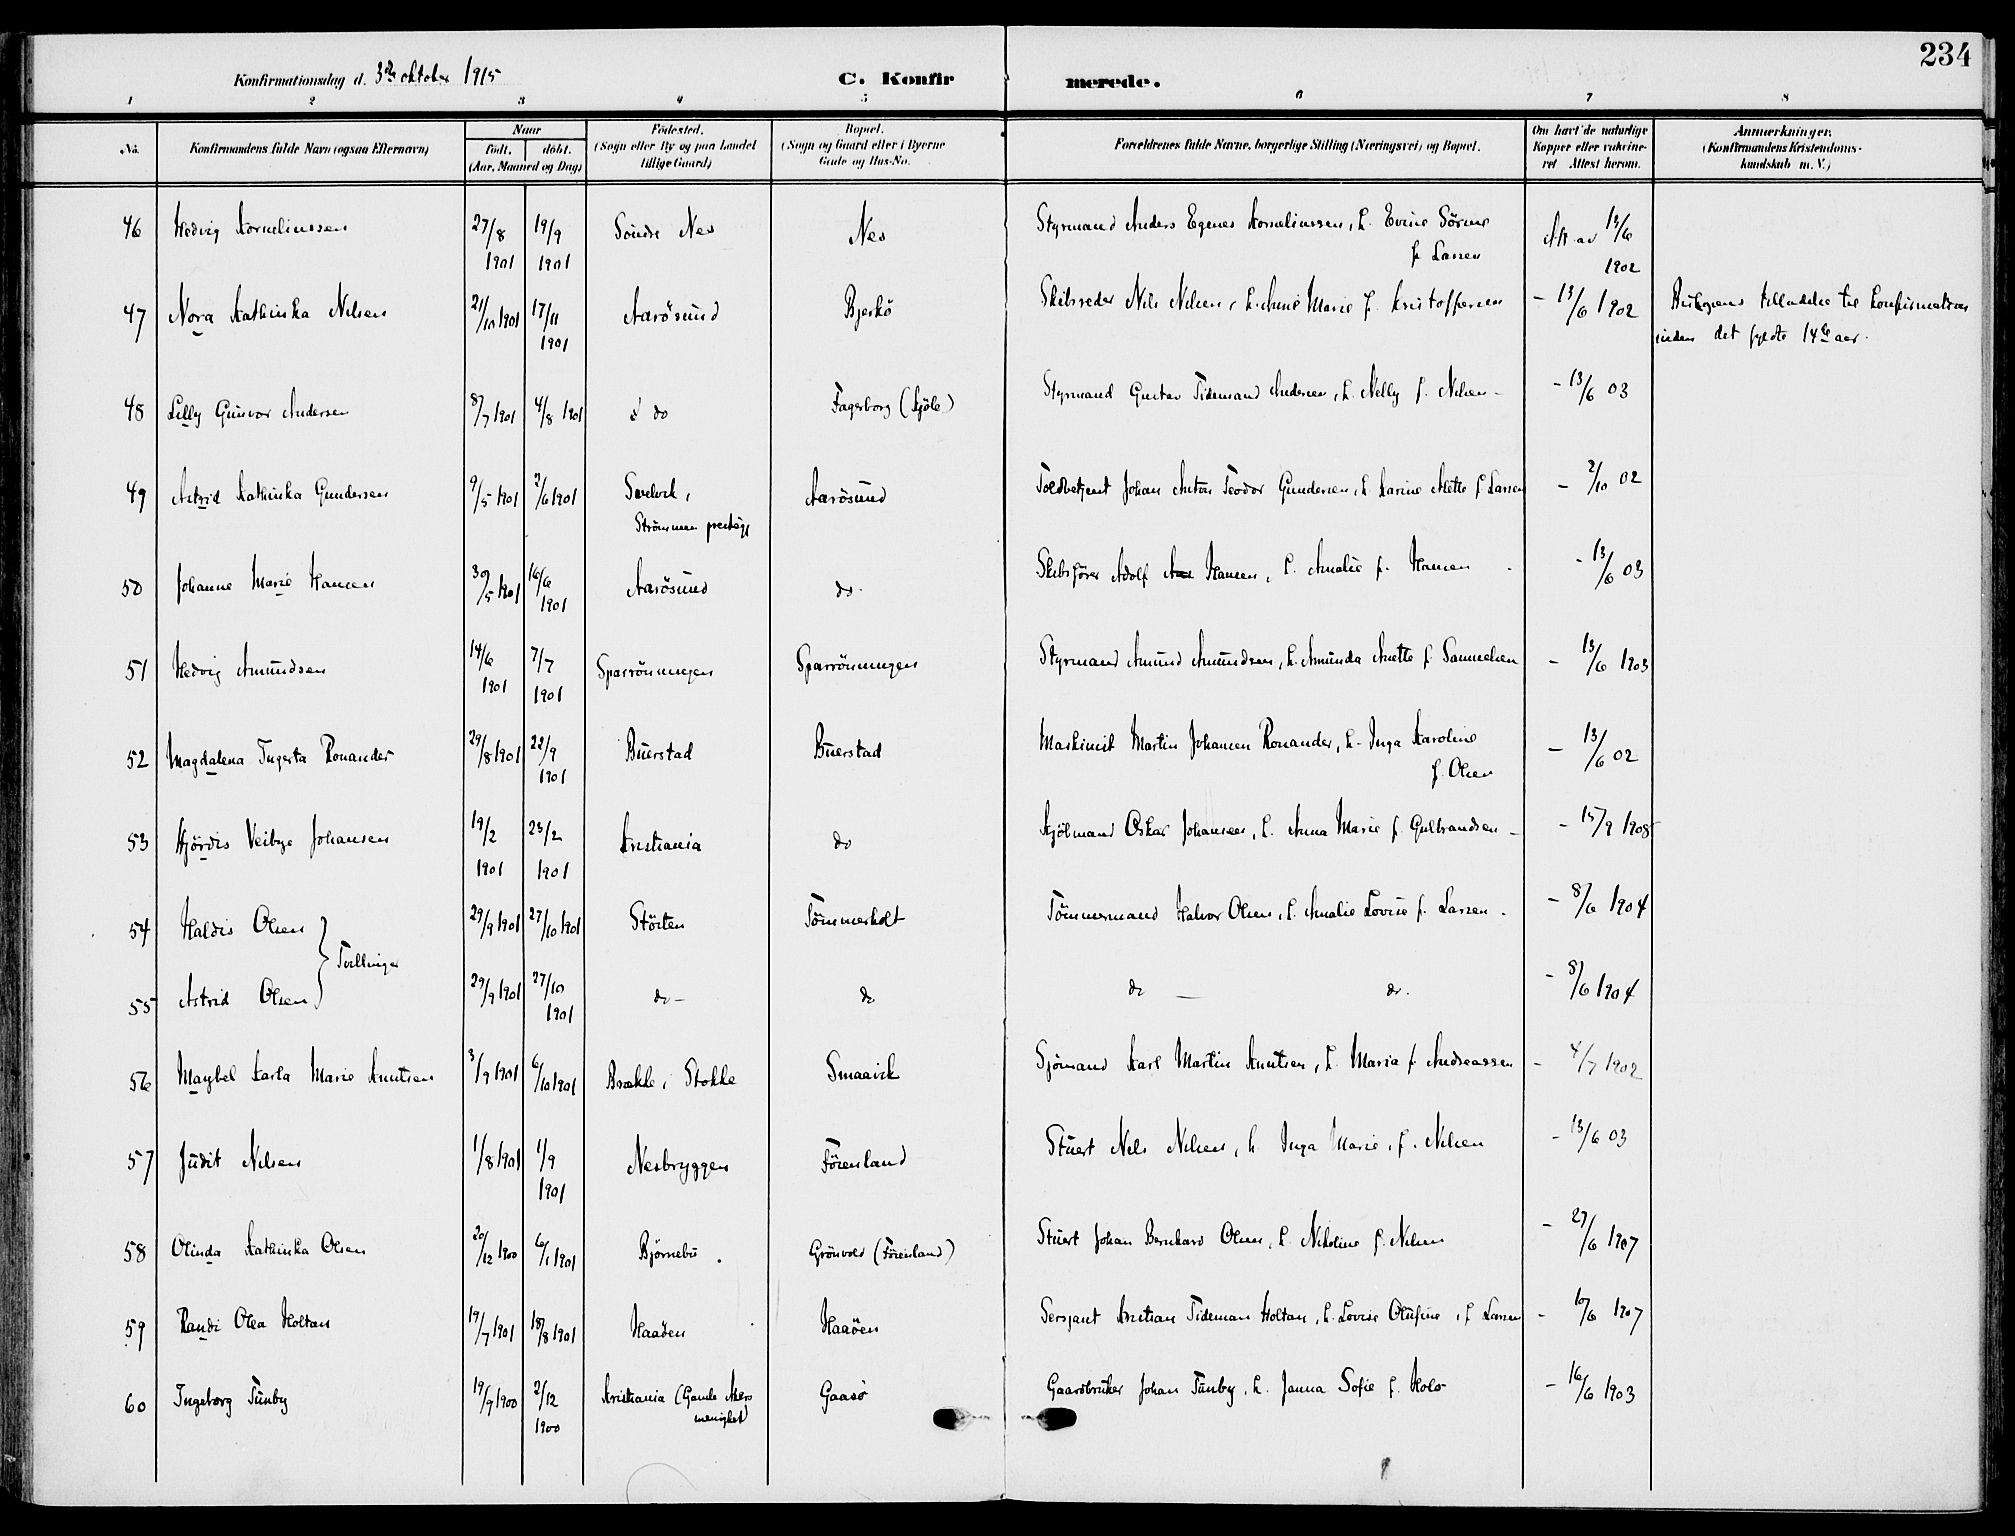 234
Konfirmationsdag d. 3die oktober 1915 C. Konfirmerede.
1 2 3 4 5 6 7 8
No. Konfirmandens fulde Navn (ogsaa Efternavn) Naar födt. döbt. (Aar, Maaned og Dag) Födested. (Sogn eller By og paa Landet tillige Gaard) Bopæl. (Sogn og Gaard eller i Byerne Gade og Hus-No. Forældrenes fulde Navne, borgerlige Stilling (Næringsvei) og Bopæl. Om havt de naturlige Kopper eller vakcineret Attest herom. Anmærkninger. (Konfirmandens Kristendomskundskab m. V.)
46 Hedvig Kornelinssen 27/8 1901 19/9 1901 Söndre Nes Nes Styrmand Anders Egenes Kornelinssen, h. Evine Sörine f. Larsen Att. av 13/6 1902
47 Nora Kathinka Nilsen 21/10 1901 17/11 1901 Aarösund Bjerkö Skibsreder Nils Nilsen, h. Anne Marie f. Kristoffersen - 13/6 1902 tilladelse til konfirmation
inden det fyldte 14de aar.
48 Lilly Gunvor Andersen 8/7 1901 4/8 1901 do Fagerborg (Kjöle) Styrmand Gustav Tidemand Andersen, h. Nelly f. Nilsen - - 13/6 03
49 Astrid Kathinka Gundersen 9/5 1901 2/6 1901 Svelvik, Strömmen prestegj Aarösund Toldbetjent Johan Anton Teodor Gundersen, h. Karine Mette f. Larsen - 2/10 02
50 Johanne Marie Hansen 30/5 1901 16/6 1901 Aarösund do. Skibsförer Adolf Hansen, h. Amalie f. Hansen - 13/6 03
51 Hedvig Amundsen 14/6 1901 7/7 1901 Sparrönningen Sparrönningen Styrmand Amund Amundsen, h. Amunda Anette f. Samuelsen - 13/6 1903
52 Magdalena Ingerta Ronander 29/8 1901 22/9 1901 Buerstad Buerstad Maskinist Martin Johansen Ronander, h. Inga Karoline f. Olsen - 13/6 02
53 Hjördis Veibye Johansen 19/2 1901 23/2 1901 Kristiania do Sjömand Oskar Johansen, h. Anna Marie f. Gulbrandsen - - 15/9 1908
54 Haldis Olsen 29/9 1901 27/10 1901 Störten Tömmerholt Tömmermand Halvor Olsen, h. Amalie Lovise f. Larsen. - 8/6 1904
Tvillinger
55 Astrid Olsen 29/9 1901 27/10 1901 do - do do - do. - 8/6 1904
56 Maybel Karla Marie Knutsen 3/9 1901 6/10 1901 Brække i Stokke Smaavik Sjömand Karl Martin Knutsen, h. Maria f. Andreassen - 4/7 1902
57 Judit Nilsen 1/8 1901 1/9 1901 Nesbryggen Föienland Stuert Nils Nilsen, h Inga Marie, f. Nilsen - 13/6 03
58 Olinda Kathinka Olsen 20/12 1900 6/1 1901 Björnebu . Grönvold (Föienland) Stuert Johan Bernhard Olsen, h. Nikoline f. Nilsen - 27/6 1907
59 Randi Olea Holtan 19/7 1901 18/8 1901 Haaöen Haaöen Sersjant Kristian Tideman Holtan, h. Lovise Olufine, f. Larsen - 10/6 1907
60 Ingeborg Tunby 19/9 1900 2/12 1900 Kristiania (Gamle Akers menighet) Gaasö Gaardbruker Johan Tunby, h. Janna Sofie f. Holo - 16/6 1903